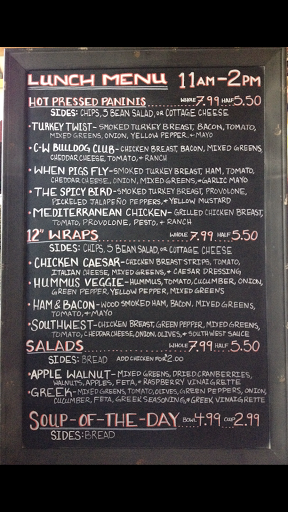 LUNCH MENU 11AM-2PM
HOT PRESSED PANINIS......WHOLE 7.99 HALF 5.50
SIDES: CHIPS, 5 BEAN SALAD, OR COTTAGE CHEESE
•TURKEY TWIST-SMOKED TURKEY BREAST, BACON, TOMATO,
MIXED GREENS, ONION, YELLOW PEPPER, + MAYO
•C-W BULLDOG CLUB-CHICKEN BREAST, BACON, MIXED GREENS,
CHEDDAR CHEESE, TOMATO, + RANCH
•WHEN PIGS FLY-SMOKED TURKEY BREAST, HAM, TOMATO,
CHEDDAR CHEESE, ONION, MIXED GREENS, + GARLIC MAYO
•THE SPICY BIRD-SMOKED TURKEY BREAST, PROVOLONE,
PICKELED JALAPEÑO PEPPERS, + YELLOW MUSTARD
•MEDITERRANEAN CHICKEN-GRILLED CHICKEN BREAST,
TOMATO, PROVOLONE, PESTO, + RANCH
12" WRAPS......WHOLE 7.99 HALF 5.50
SIDES: CHIPS, 5 BEAN SALAD, OR COTTAGE CHEESE
•CHICKEN CAESAR-CHICKEN BREAST STRIPS, TOMATO,
ITALIAN CHEESE, MIXED GREENS, + CAESAR DRESSING
•HUMMUS VEGGIE-HUMMUS, TOMATO, CUCUMBER, ONION,
GREEN PEPPER, YELLOW PEPPER, MIXED GREENS
•HAM & BACON-WOOD SMOKED HAM, BACON, MIXED GREENS,
TOMATO, + MAYO
•SOUTHWEST-CHICKEN BREAST, GREEN PEPPER, MIXED GREENS,
TOMATO, CHEDDAR CHEESE, ONION, OLIVES, + SOUTHWEST SAUCE
SALADS......WHOLE 7.99 HALF 5.50
SIDES: BREAD ADD CHICKEN FOR 2.00
•APPLE WALNUT-MIXED GREENS, DRIED CRANBERRIES,
WALNUTS, APPLES, FETA, + RASPBERRY VINAIGRETTE
•GREEK-MIXED GREENS, TOMATO, OLIVES, GREEN PEPPERS, ONION,
CUCUMBER, FETA, GREEK SEASONING, + GREEK VINAIGRETTE
SOUP-OF-THE-DAY BOWL 4.99 CUP 2.99
SIDES: BREAD